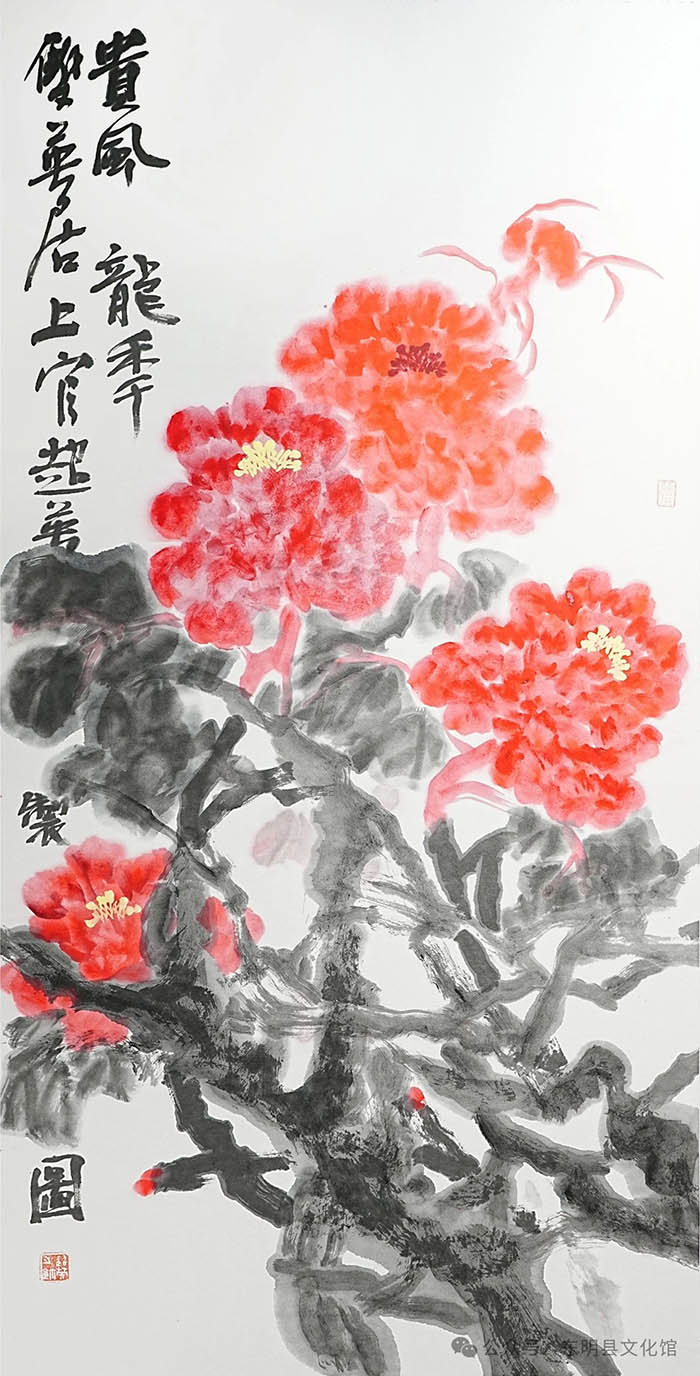 貴風　龍秊
雙英居上官超英製圖
公众号·东明县文化馆